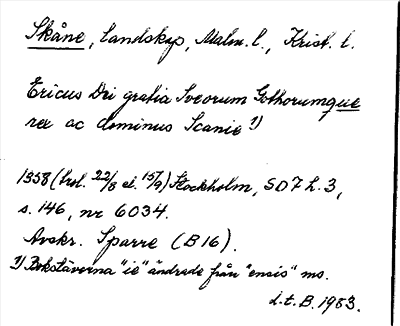 Skåne, landskap, Malm. l., Krist. l.
Ericus Dei gratia Sveorum Gothorumque
rex ac dominus Scanie 1)
1358 (trol. 22/8 el. 15/9) Stockholm, SD 7 h. 3,
s. 146, nr 6034.
Avskr. Sparre (B 16).
1) Bokstäverna "ie" ändrade från "ensis" ms.
L.t.B. 1983.